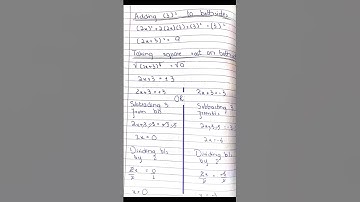 Adding (3)² to bothsides
(2x)² + 2(2x)(3) + (3)² = (3)²
(2x+3)² = 9
Taking square root on both
√(2x+3)² = √9
2x+3 = ±3
2x+3 = +3
2x+3 = -3
OR
Subtracting 3
from b/s
2x+3-3 = +3-3
2x = 0
Dividing b/s
by 2
2x/2 = 0/2
x = 0
Subtracting 3
2x+3-3 = -3-3
Dividing b/s
by